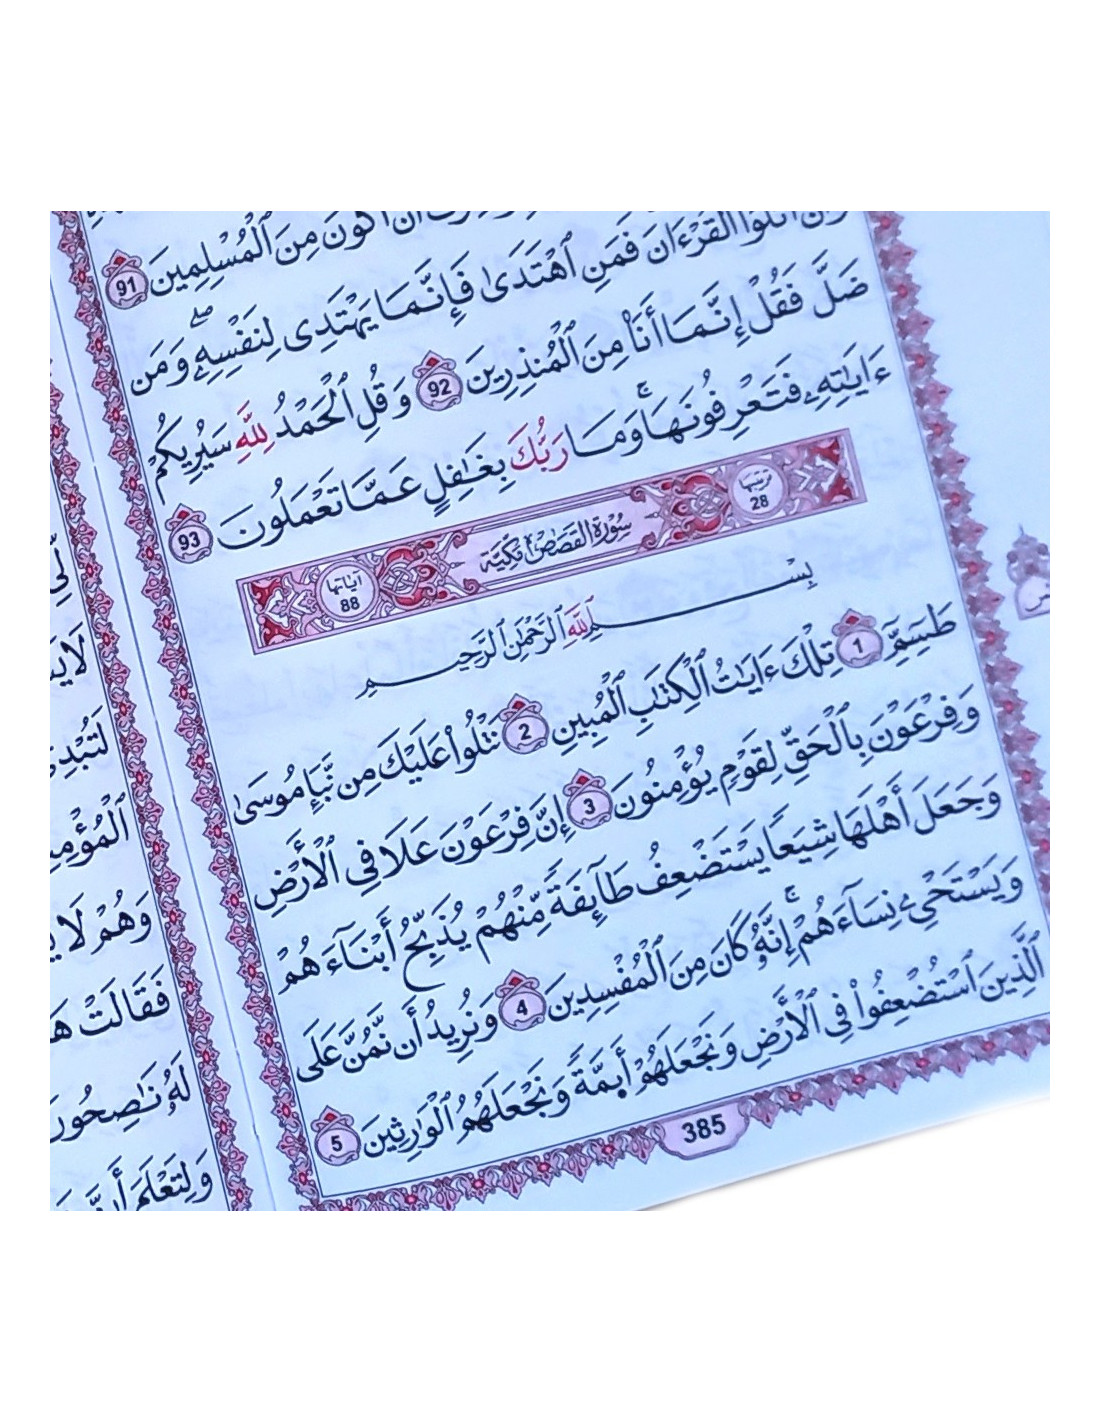 أَنْ أَكُونَ مِنَ ٱلْمُسْلِمِينَ 91
أَتْلُوَا۟ ٱلْقُرْءَانَ فَمَنِ ٱهْتَدَىٰ فَإِنَّمَا يَهْتَدِى لِنَفْسِهِۦ ۖ وَمَن
ضَلَّ فَقُلْ إِنَّمَا أَنَا۠ مِنَ ٱلْمُنذِرِينَ 92 وَقُلِ ٱلْحَمْدُ لِلَّهِ سَيُرِيكُمْ
ءَايَٰتِهِۦ فَتَعْرِفُونَهَا ۚ وَمَا رَبُّكَ بِغَٰفِلٍ عَمَّا تَعْمَلُونَ 93
ترتيبها 28 سُورَةُ القَصَصِ مَكِّيَّة آياتها 88
بِسْمِ ٱللَّهِ ٱلرَّحْمَٰنِ ٱلرَّحِيمِ
طسٓمٓ 1 تِلْكَ ءَايَٰتُ ٱلْكِتَٰبِ ٱلْمُبِينِ 2 نَتْلُوا۟ عَلَيْكَ مِن نَّبَإِ مُوسَىٰ
وَفِرْعَوْنَ بِٱلْحَقِّ لِقَوْمٍ يُؤْمِنُونَ 3 إِنَّ فِرْعَوْنَ عَلَا فِى ٱلْأَرْضِ
وَجَعَلَ أَهْلَهَا شِيَعًا يَسْتَضْعِفُ طَآئِفَةً مِّنْهُمْ يُذَبِّحُ أَبْنَآءَهُمْ
وَيَسْتَحْىِۦ نِسَآءَهُمْ ۚ إِنَّهُۥ كَانَ مِنَ ٱلْمُفْسِدِينَ 4 وَنُرِيدُ أَن نَّمُنَّ عَلَى
ٱلَّذِينَ ٱسْتُضْعِفُوا۟ فِى ٱلْأَرْضِ وَنَجْعَلَهُمُۥٓ أَىِٕمَّةً وَنَجْعَلَهُمُ ٱلْوَٰرِثِينَ 5
385
ٱلْمُؤْمِ
وَهُمْ لَا
فَقَالَتْ
لَهُۥ نَٰصِحُونَ
وَلِتَعْلَمَ أَنَّ